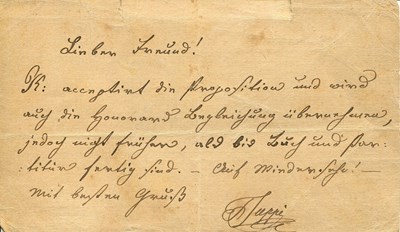 Lieber Freund!
K: acceptirt die Proposition und wird
auch die Honorars Begleichung übernehmen,
jedoch nicht früher, als bis Buch und Par-
titur fertig sind. – Auf Wiedersehn! –
Mit besten Gruß
FSuppé